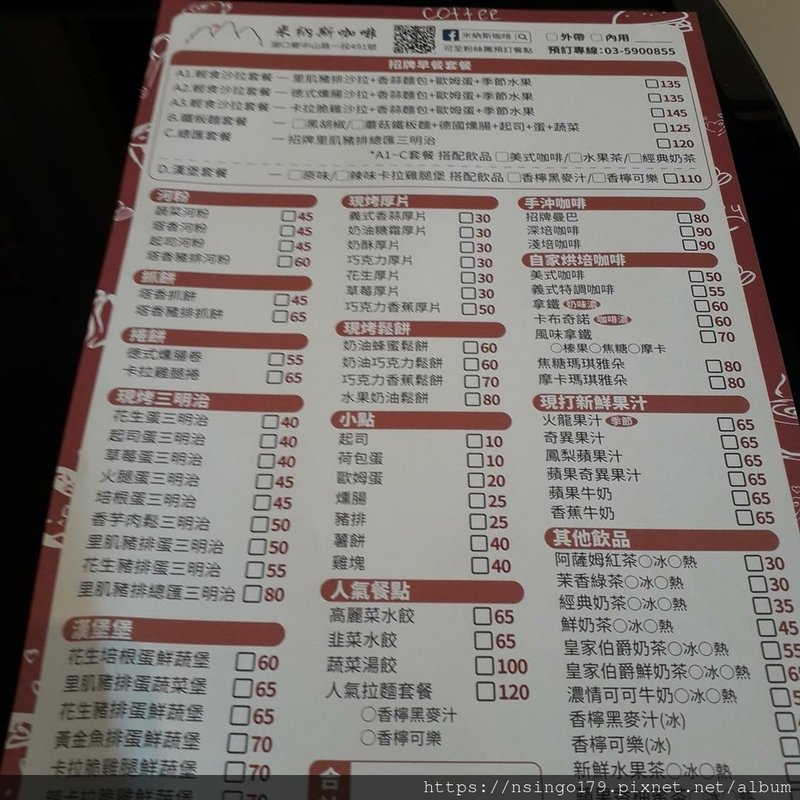 coffee
米納斯咖啡
湖口鄉中山路一段491號
米納斯咖啡
可至粉絲團預訂餐點
外帶 內用
預訂專線:03-5900855
招牌早餐套餐
A1.輕食沙拉套餐 — 里肌豬排沙拉+香蒜麵包+歐姆蛋+季節水果 135
A2.輕食沙拉套餐 — 德式燻腸沙拉+香蒜麵包+歐姆蛋+季節水果 135
A3.輕食沙拉套餐 — 卡拉脆雞沙拉+香蒜麵包+歐姆蛋+季節水果 145
B.鐵板麵套餐 — 黑胡椒/蘑菇鐵板麵+德國燻腸+起司+蛋+蔬菜 125
C.總匯套餐 — 招牌里肌豬排總匯三明治 120
*A1~C套餐 搭配飲品 美式咖啡/水果茶/經典奶茶
D.漢堡套餐 — 原味/辣味卡拉雞腿堡 搭配飲品 香檸黑麥汁/香檸可樂 110
河粉
蔬菜河粉 45
塔香河粉 45
起司河粉 45
塔香豬排河粉 60
抓餅
塔香抓餅 45
塔香豬排抓餅 65
捲餅
德式燻腸卷 55
卡拉雞腿捲 65
現烤三明治
花生蛋三明治 40
起司蛋三明治 40
草莓蛋三明治 40
火腿蛋三明治 45
培根蛋三明治 45
香芋肉鬆三明治 50
里肌豬排蛋三明治 50
花生豬排蛋三明治 55
里肌豬排總匯三明治 80
漢堡堡
花生培根蛋鮮蔬堡 60
里肌豬排蛋蔬菜堡 65
花生豬排蛋鮮蔬堡 65
黃金魚排蛋鮮蔬堡 70
卡拉脆雞腿鮮蔬堡 70
現烤厚片
義式香蒜厚片 30
奶油糖霜厚片 30
奶酥厚片 30
巧克力厚片 30
花生厚片 30
草莓厚片 30
巧克力香蕉厚片 50
現烤鬆餅
奶油蜂蜜鬆餅 60
奶油巧克力鬆餅 60
巧克力香蕉鬆餅 70
水果奶油鬆餅 80
小點
起司 10
荷包蛋 10
歐姆蛋 20
燻腸 25
豬排 25
薯餅 40
雞塊 40
人氣餐點
高麗菜水餃 65
韭菜水餃 65
蔬菜湯餃 100
人氣拉麵套餐 120
○香檸黑麥汁
○香檸可樂
合
手沖咖啡
招牌曼巴 80
深培咖啡 90
淺培咖啡 90
自家烘培咖啡
美式咖啡 50
義式特調咖啡 55
拿鐵 奶味濃 60
卡布奇諾 咖啡濃 60
風味拿鐵 70
○榛果○焦糖○摩卡
焦糖瑪琪雅朵 80
摩卡瑪琪雅朵 80
現打新鮮果汁
火龍果汁 季節 65
奇異果汁 65
鳳梨蘋果汁 65
蘋果奇異果汁 65
蘋果牛奶 65
香蕉牛奶 65
其他飲品
阿薩姆紅茶○冰○熱 30
茉香綠茶○冰○熱 30
經典奶茶○冰○熱 35
鮮奶茶○冰○熱 45
皇家伯爵奶茶○冰○熱 55
皇家伯爵鮮奶茶○冰○熱
濃情可可牛奶○冰○熱
香檸黑麥汁(冰)
香檸可樂(冰)
新鮮水果茶○冰○熱
https://nsingo179.pixnet.net/album